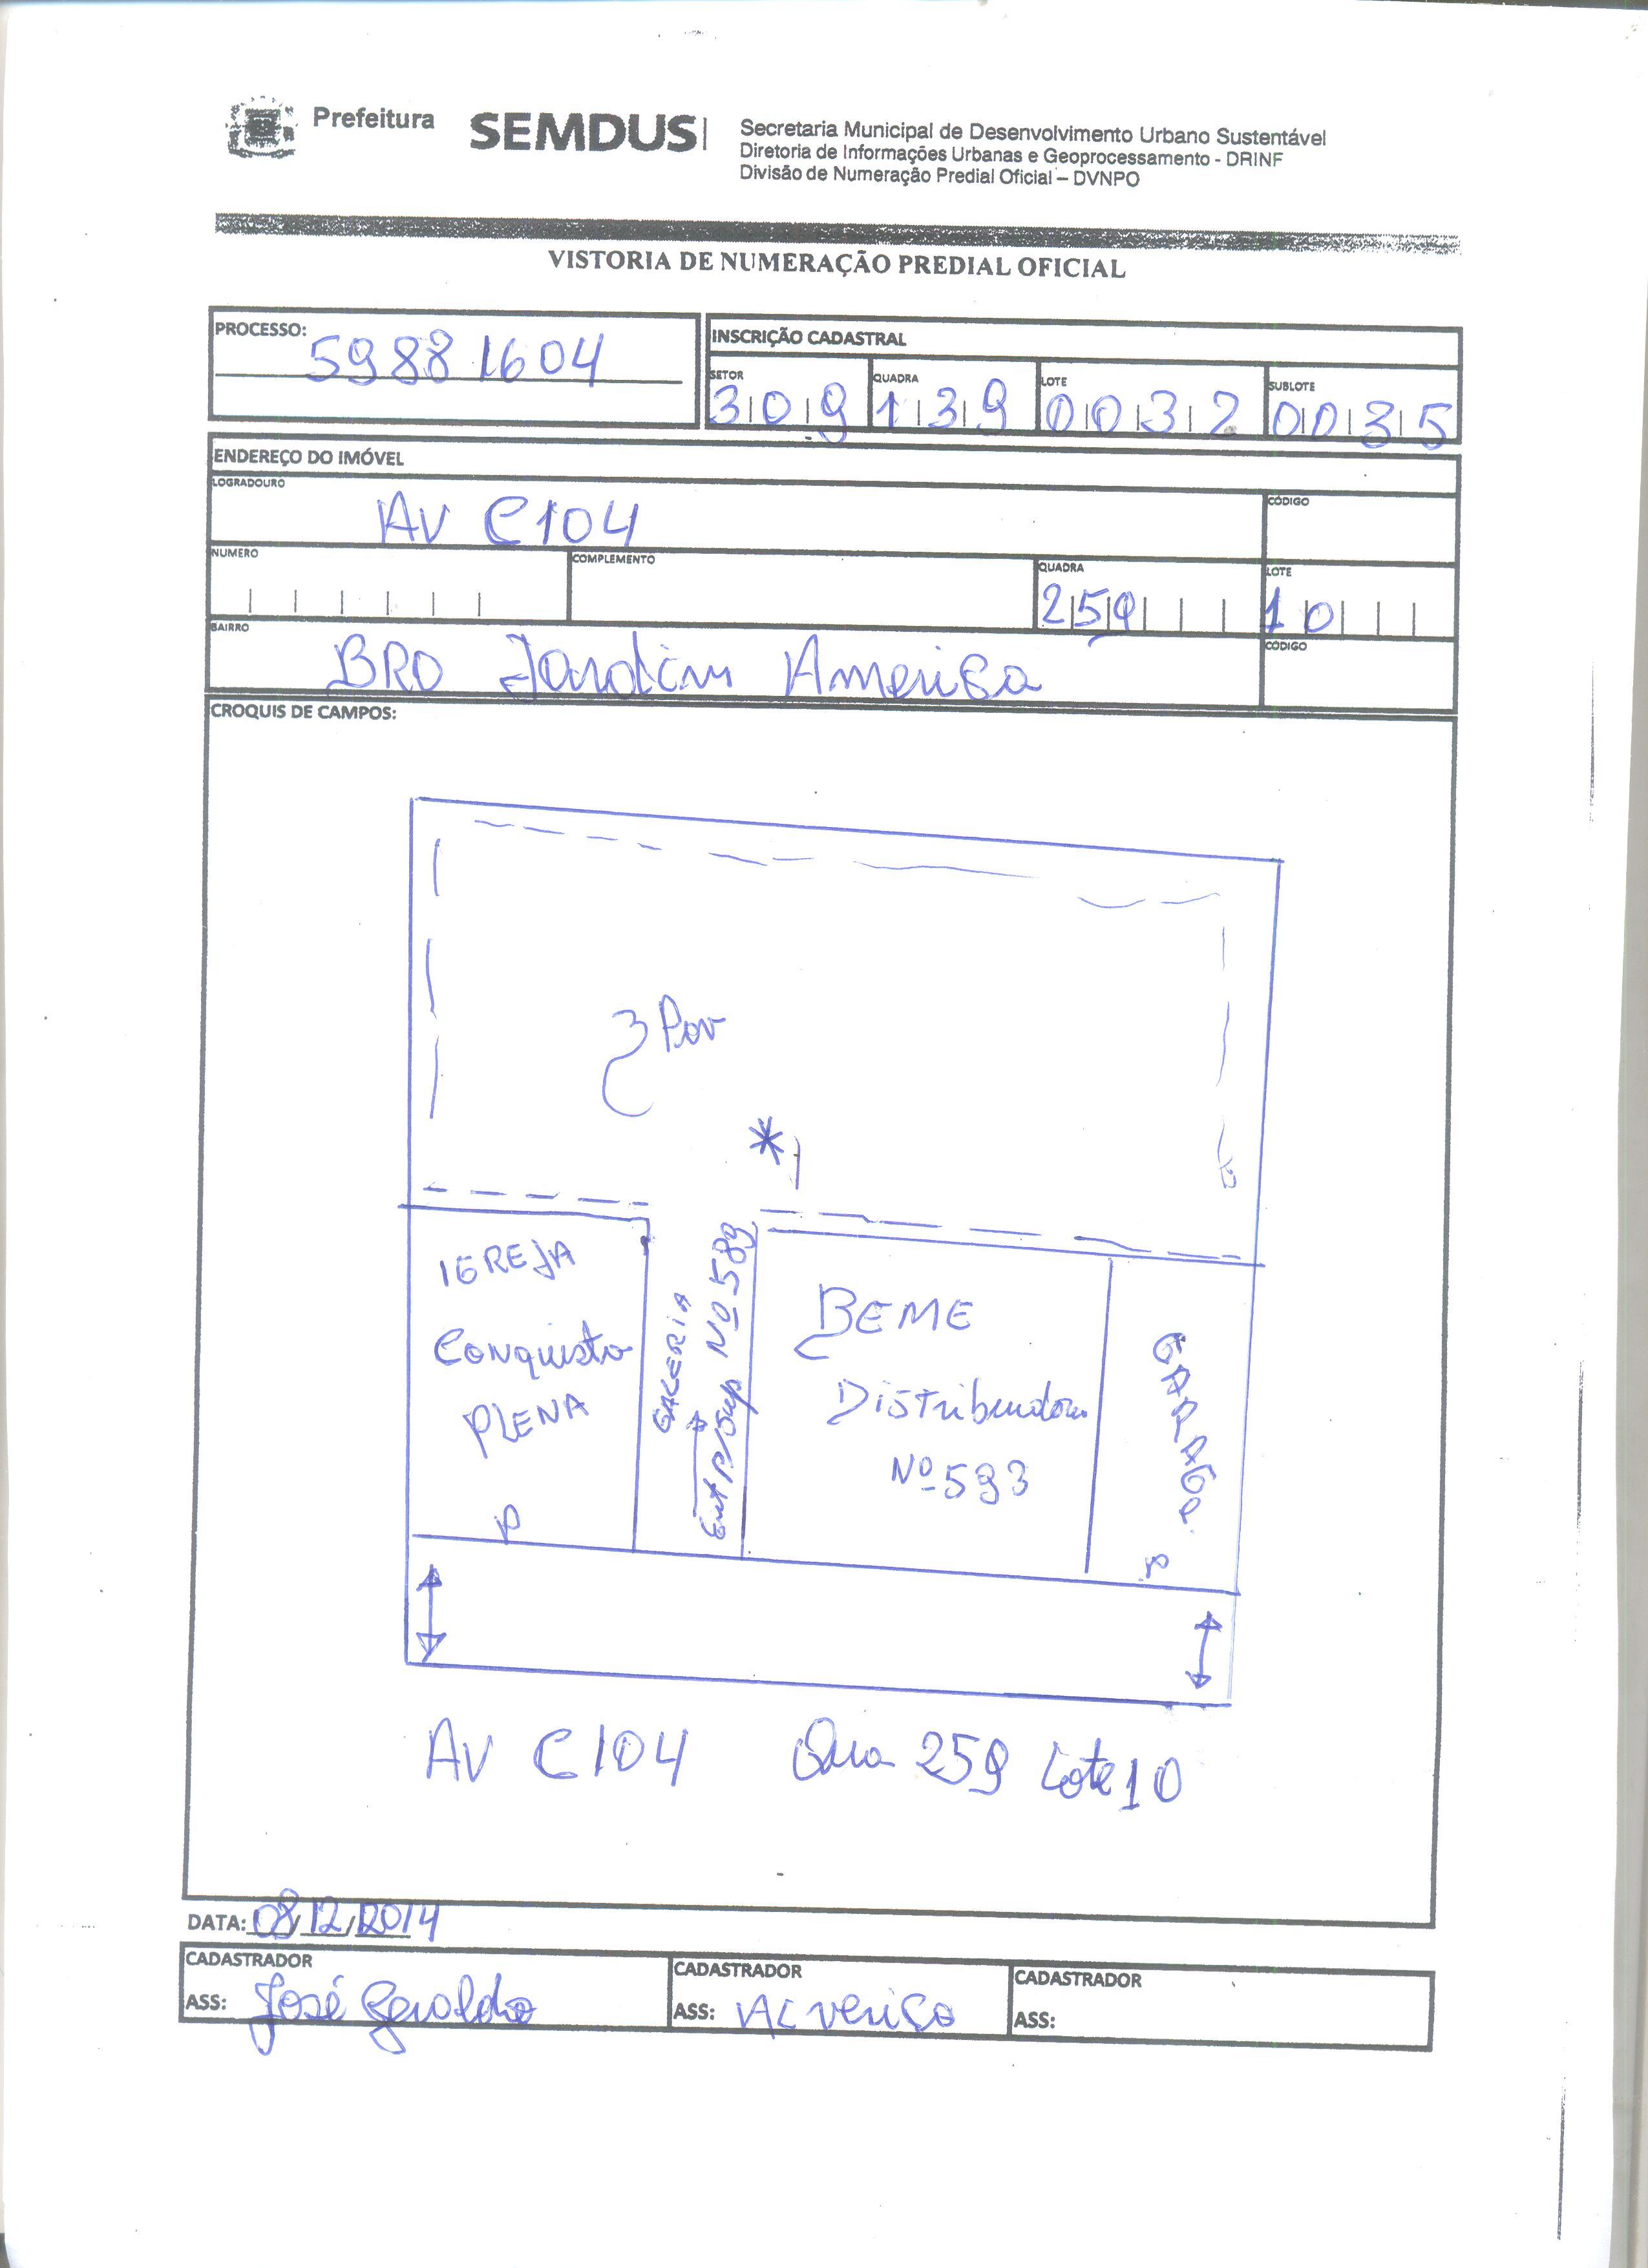 Prefeitura
SEMDUS
Secretaria Municipal de Desenvolvimento Urbano Sustentável
Diretoria de Informações Urbanas e Geoprocessamento - DRINF
Divisão de Numeração Predial Oficial – DVNPO
VISTORIA DE NUMERAÇÃO PREDIAL OFICIAL
PROCESSO: 59881604
INSCRIÇÃO CADASTRAL
SETOR 309 QUADRA 139 LOTE 0032 SUBLOTE 0035
ENDEREÇO DO IMÓVEL
LOGRADOURO AV C104 CÓDIGO
NUMERO COMPLEMENTO QUADRA 259 LOTE 10
BAIRRO BRO Jardim America CÓDIGO
CROQUIS DE CAMPOS:
3 Pav
IGREJA
Conquista
PLENA
P
GALERIA
Ent p/ Sup Nº 589
BEME
Distribuidora
Nº 593
GARAGE
P
AV C104 Qua 259 Lote 10
DATA: 08/12/2014
CADASTRADOR
ASS: José Geraldo
CADASTRADOR
ASS: ALVeriCo
CADASTRADOR
ASS: